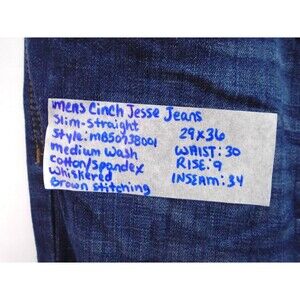 mens Cinch Jesse Jeans
Slim-straight
Style: MB50738001
medium wash
cotton/spandex
Whiskered
Brown stitching
29x36
WAIST: 30
RISE: 9
INSEAM: 34